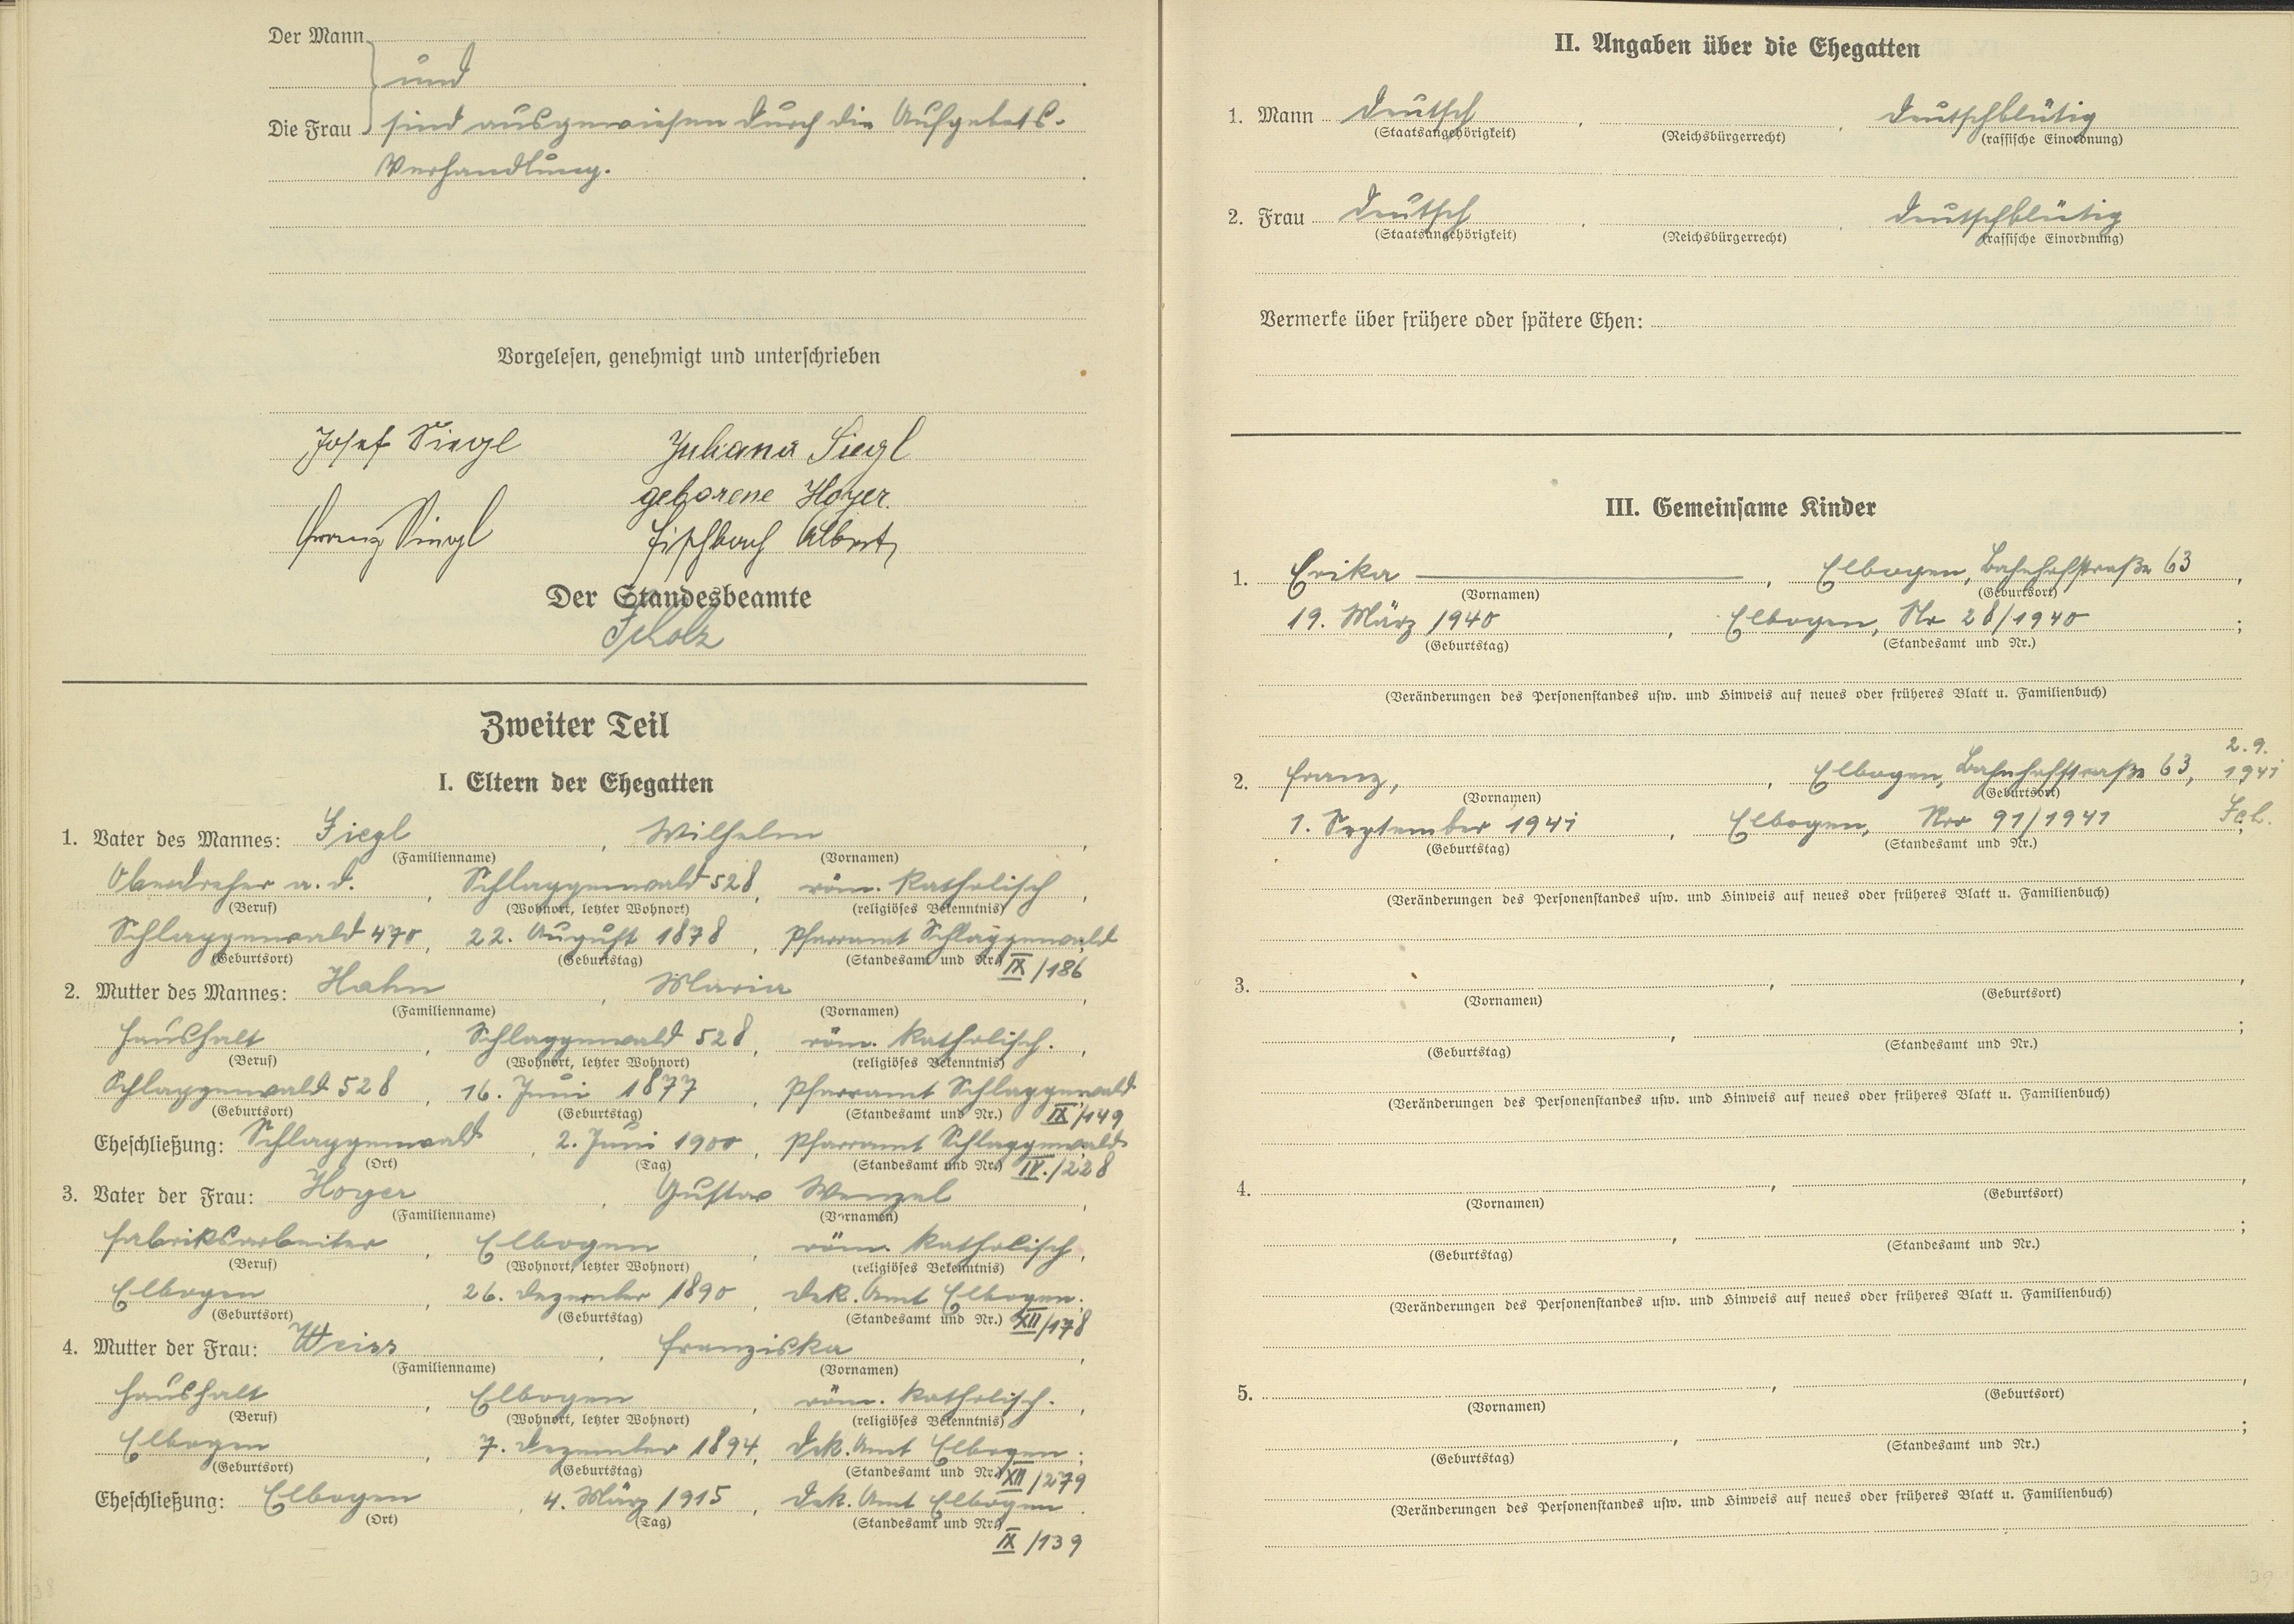 Der Mann
und
Die Frau sind ausgewiesen durch die Aufgebots-
Verhandlung.
Vorgelesen, genehmigt und unterschrieben
Josef Siegl Juliana Siegl
geborene Hoyer.
Franz Siegl Fischbach Albert
Der Standesbeamte
Scholz
Zweiter Teil
I. Eltern der Ehegatten
1. Vater des Mannes: Siegl, Wilhelm,
(Familienname) (Vornamen)
Oberdreher a. D., Schlaggenwald 528, röm. katholisch,
(Beruf) (Wohnort, letzter Wohnort) (religiöses Bekenntnis)
Schlaggenwald 470, 22. August 1878, Pfarramt Schlaggenwald
(Geburtsort) (Geburtstag) (Standesamt und Nr.) IX/186
2. Mutter des Mannes: Hahn, Maria,
(Familienname) (Vornamen)
Haushalt, Schlaggenwald 528, röm. katholisch.,
(Beruf) (Wohnort, letzter Wohnort) (religiöses Bekenntnis)
Schlaggenwald 528, 16. Juni 1877, Pfarramt Schlaggenwald
(Geburtsort) (Geburtstag) (Standesamt und Nr.) IX/149
Eheschließung: Schlaggenwald, 2. Juni 1900, Pfarramt Schlaggenwald
(Ort) (Tag) (Standesamt und Nr.) IV./228
3. Vater der Frau: Hoyer, Gustav Wenzel,
(Familienname) (Vornamen)
Fabriksarbeiter, Elbogen, röm. katholisch,
(Beruf) (Wohnort, letzter Wohnort) (religiöses Bekenntnis)
Elbogen, 26. Dezember 1890, Dek. Amt Elbogen;
(Geburtsort) (Geburtstag) (Standesamt und Nr.) XII/178
4. Mutter der Frau: Weiss, Franziska,
(Familienname) (Vornamen)
Haushalt, Elbogen, röm. katholisch.,
(Beruf) (Wohnort, letzter Wohnort) (religiöses Bekenntnis)
Elbogen, 7. Dezember 1894, Dek. Amt Elbogen;
(Geburtsort) (Geburtstag) (Standesamt und Nr.) XII/279
Eheschließung: Elbogen, 4. März 1915, Dek. Amt Elbogen.
(Ort) (Tag) (Standesamt und Nr.)
IX/139
38
II. Angaben über die Ehegatten
1. Mann Deutsch, , Deutschblütig
(Staatsangehörigkeit) (Reichsbürgerrecht) (rassische Einordnung)
2. Frau Deutsch, , Deutschblütig
(Staatsangehörigkeit) (Reichsbürgerrecht) (rassische Einordnung)
Vermerke über frühere oder spätere Ehen:
III. Gemeinsame Kinder
1. Erika, Elbogen, Bahnhofstraße 63,
(Vornamen) (Geburtsort)
19. März 1940, Elbogen, Nr 28/1940;
(Geburtstag) (Standesamt und Nr.)
(Veränderungen des Personenstandes usw. und Hinweis auf neues oder früheres Blatt u. Familienbuch)
2. 9.
2. Franz,, Elbogen, Bahnhofstraße 63, 1941
(Vornamen) (Geburtsort)
1. September 1941, Elbogen, Nro 91/1941 Sch.
(Geburtstag) (Standesamt und Nr.)
(Veränderungen des Personenstandes usw. und Hinweis auf neues oder früheres Blatt u. Familienbuch)
3. , ,
(Vornamen) (Geburtsort)
, ;
(Geburtstag) (Standesamt und Nr.)
(Veränderungen des Personenstandes usw. und Hinweis auf neues oder früheres Blatt u. Familienbuch)
4. , ,
(Vornamen) (Geburtsort)
, ;
(Geburtstag) (Standesamt und Nr.)
(Veränderungen des Personenstandes usw. und Hinweis auf neues oder früheres Blatt u. Familienbuch)
5. , ,
(Vornamen) (Geburtsort)
, ;
(Geburtstag) (Standesamt und Nr.)
(Veränderungen des Personenstandes usw. und Hinweis auf neues oder früheres Blatt u. Familienbuch)
39